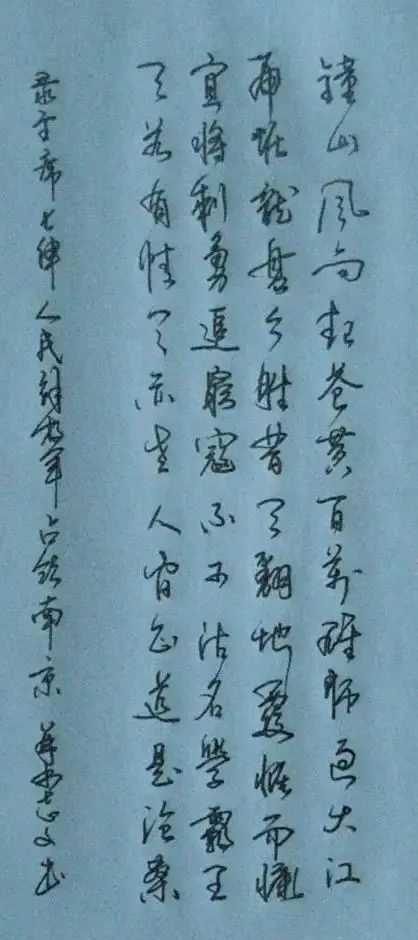 鐘山风雨起苍黄百萬雄师过大江
虎踞龍盘今胜昔天翻地覆慨而慷
宜将剩勇追窮寇不可沽名學霸王
天若有情天亦老人间正道是沧桑
录主席七律人民解放军占领南京 书